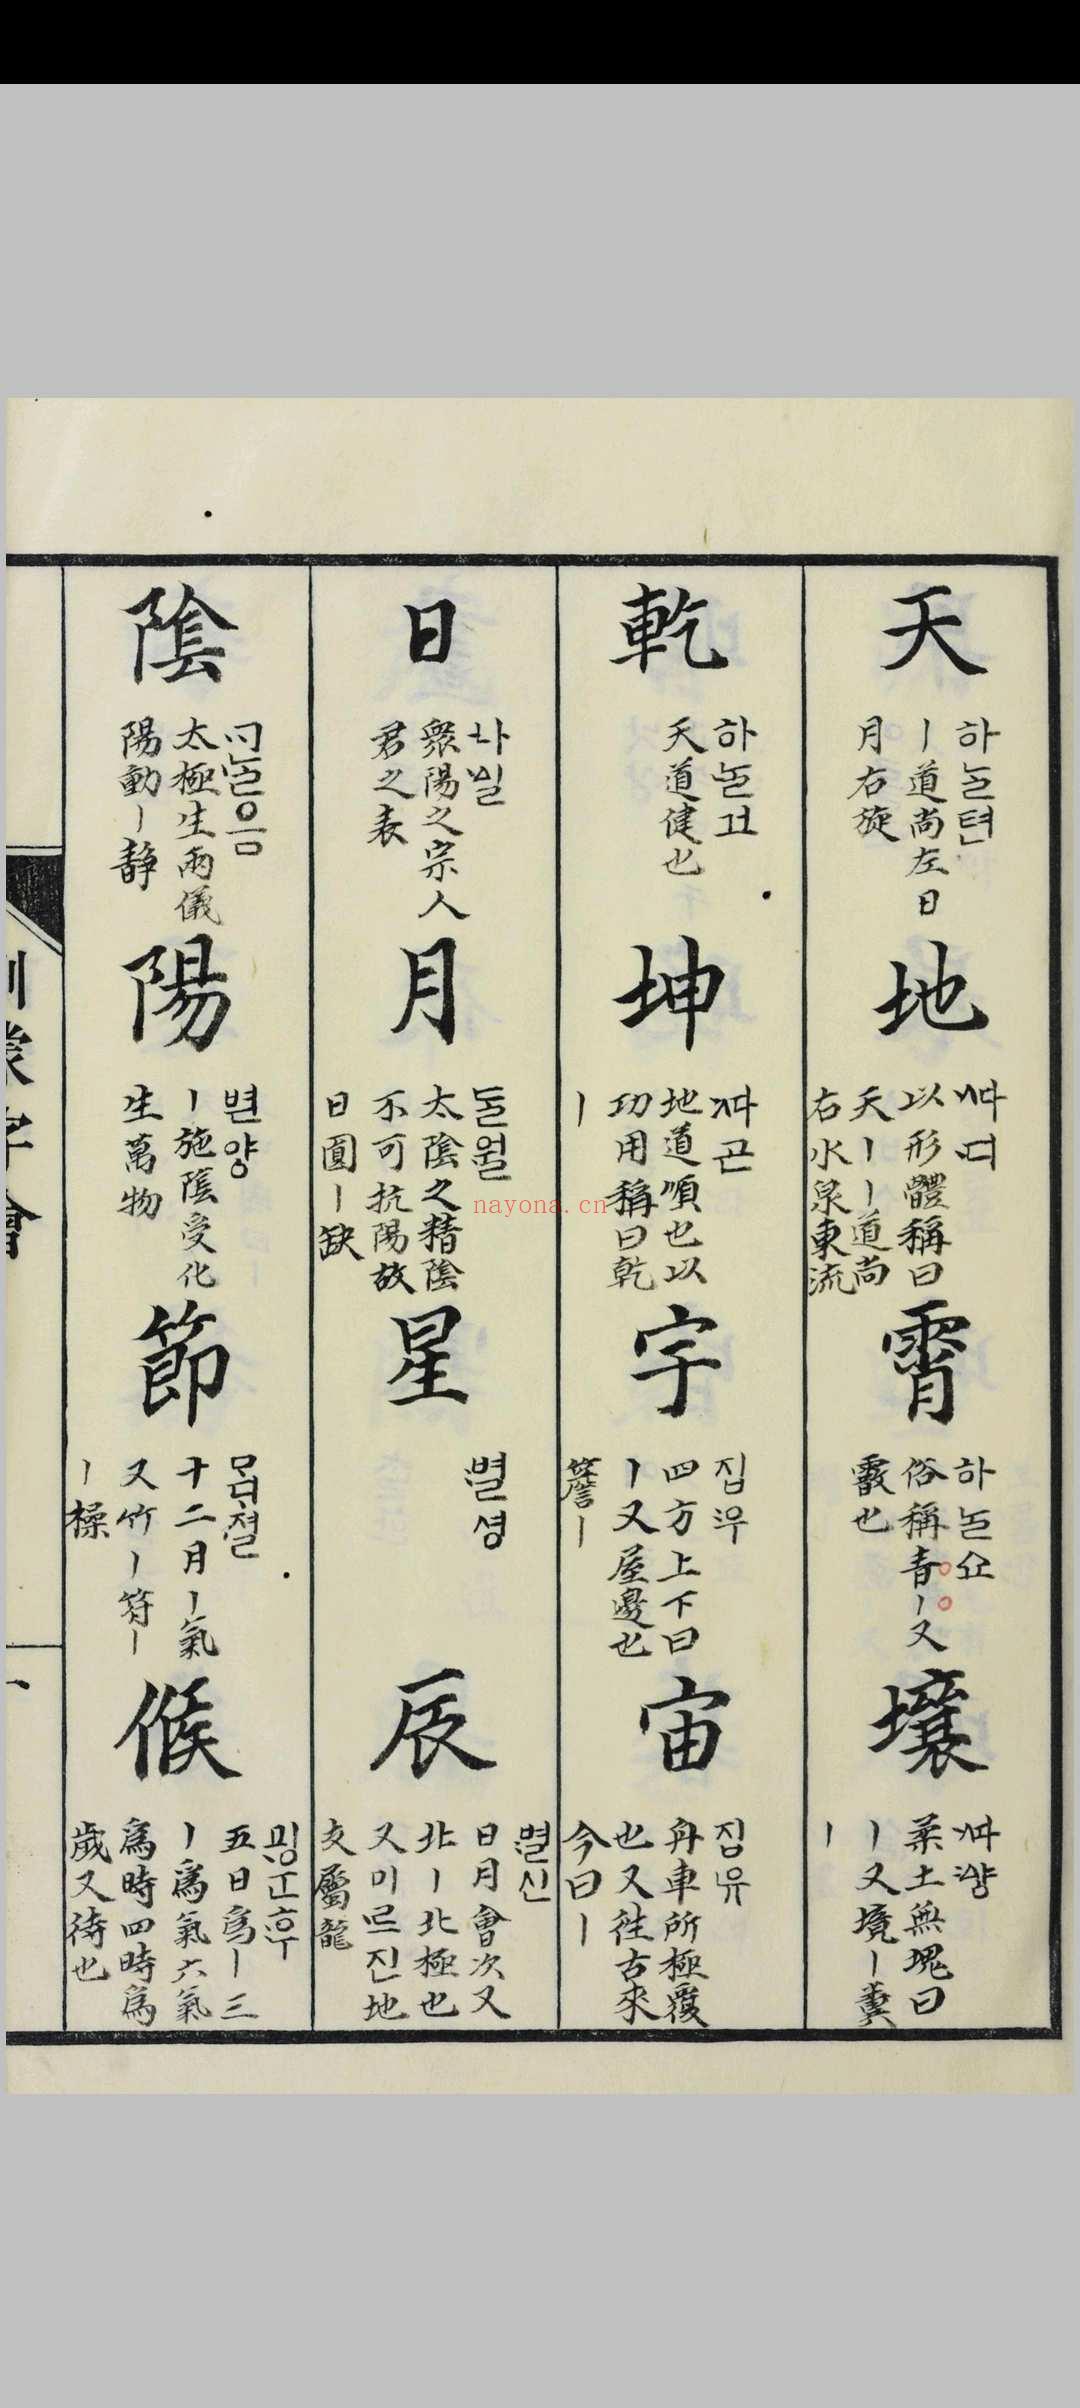 天
하ᄂᆞᆯ텬
丨道尚左日
月右旋
地
ᄯᅡ디
以形體稱曰
天丨丨道尚
右水泉東流
霄
하ᄂᆞᆯ쇼
俗稱青丨又
霰也
壤
ᄯᅡ양
柔土無塊曰
丨又境丨糞
丨
乾
하ᄂᆞᆯ
天道健也
坤
ᄯᅡ곤
地道順也以
功用稱曰乾
丨
宇
집우
四方上下曰
丨又屋邊也
簷丨
宙
집유
舟車所極覆
也又徃古來
今曰丨
日
衆陽之宗人
君之表
月
ᄃᆞᆯ월
太陰之精陰
不可抗陽故
日圓丨缺
星
별셩
辰
별신
日月會次又
北丨北極也
又미르진地
支屬龍
陰
ᄀᆞᄂᆞᆯ음
太極生兩儀
陽動丨静
陽
변양
丨施陰受化
生萬物
節
졀
十二月丨氣
又竹丨符丨
丨操
候
五日爲丨三
丨爲氣六氣
爲時四時爲
歲又待也
訓蒙字會
nayona.cn